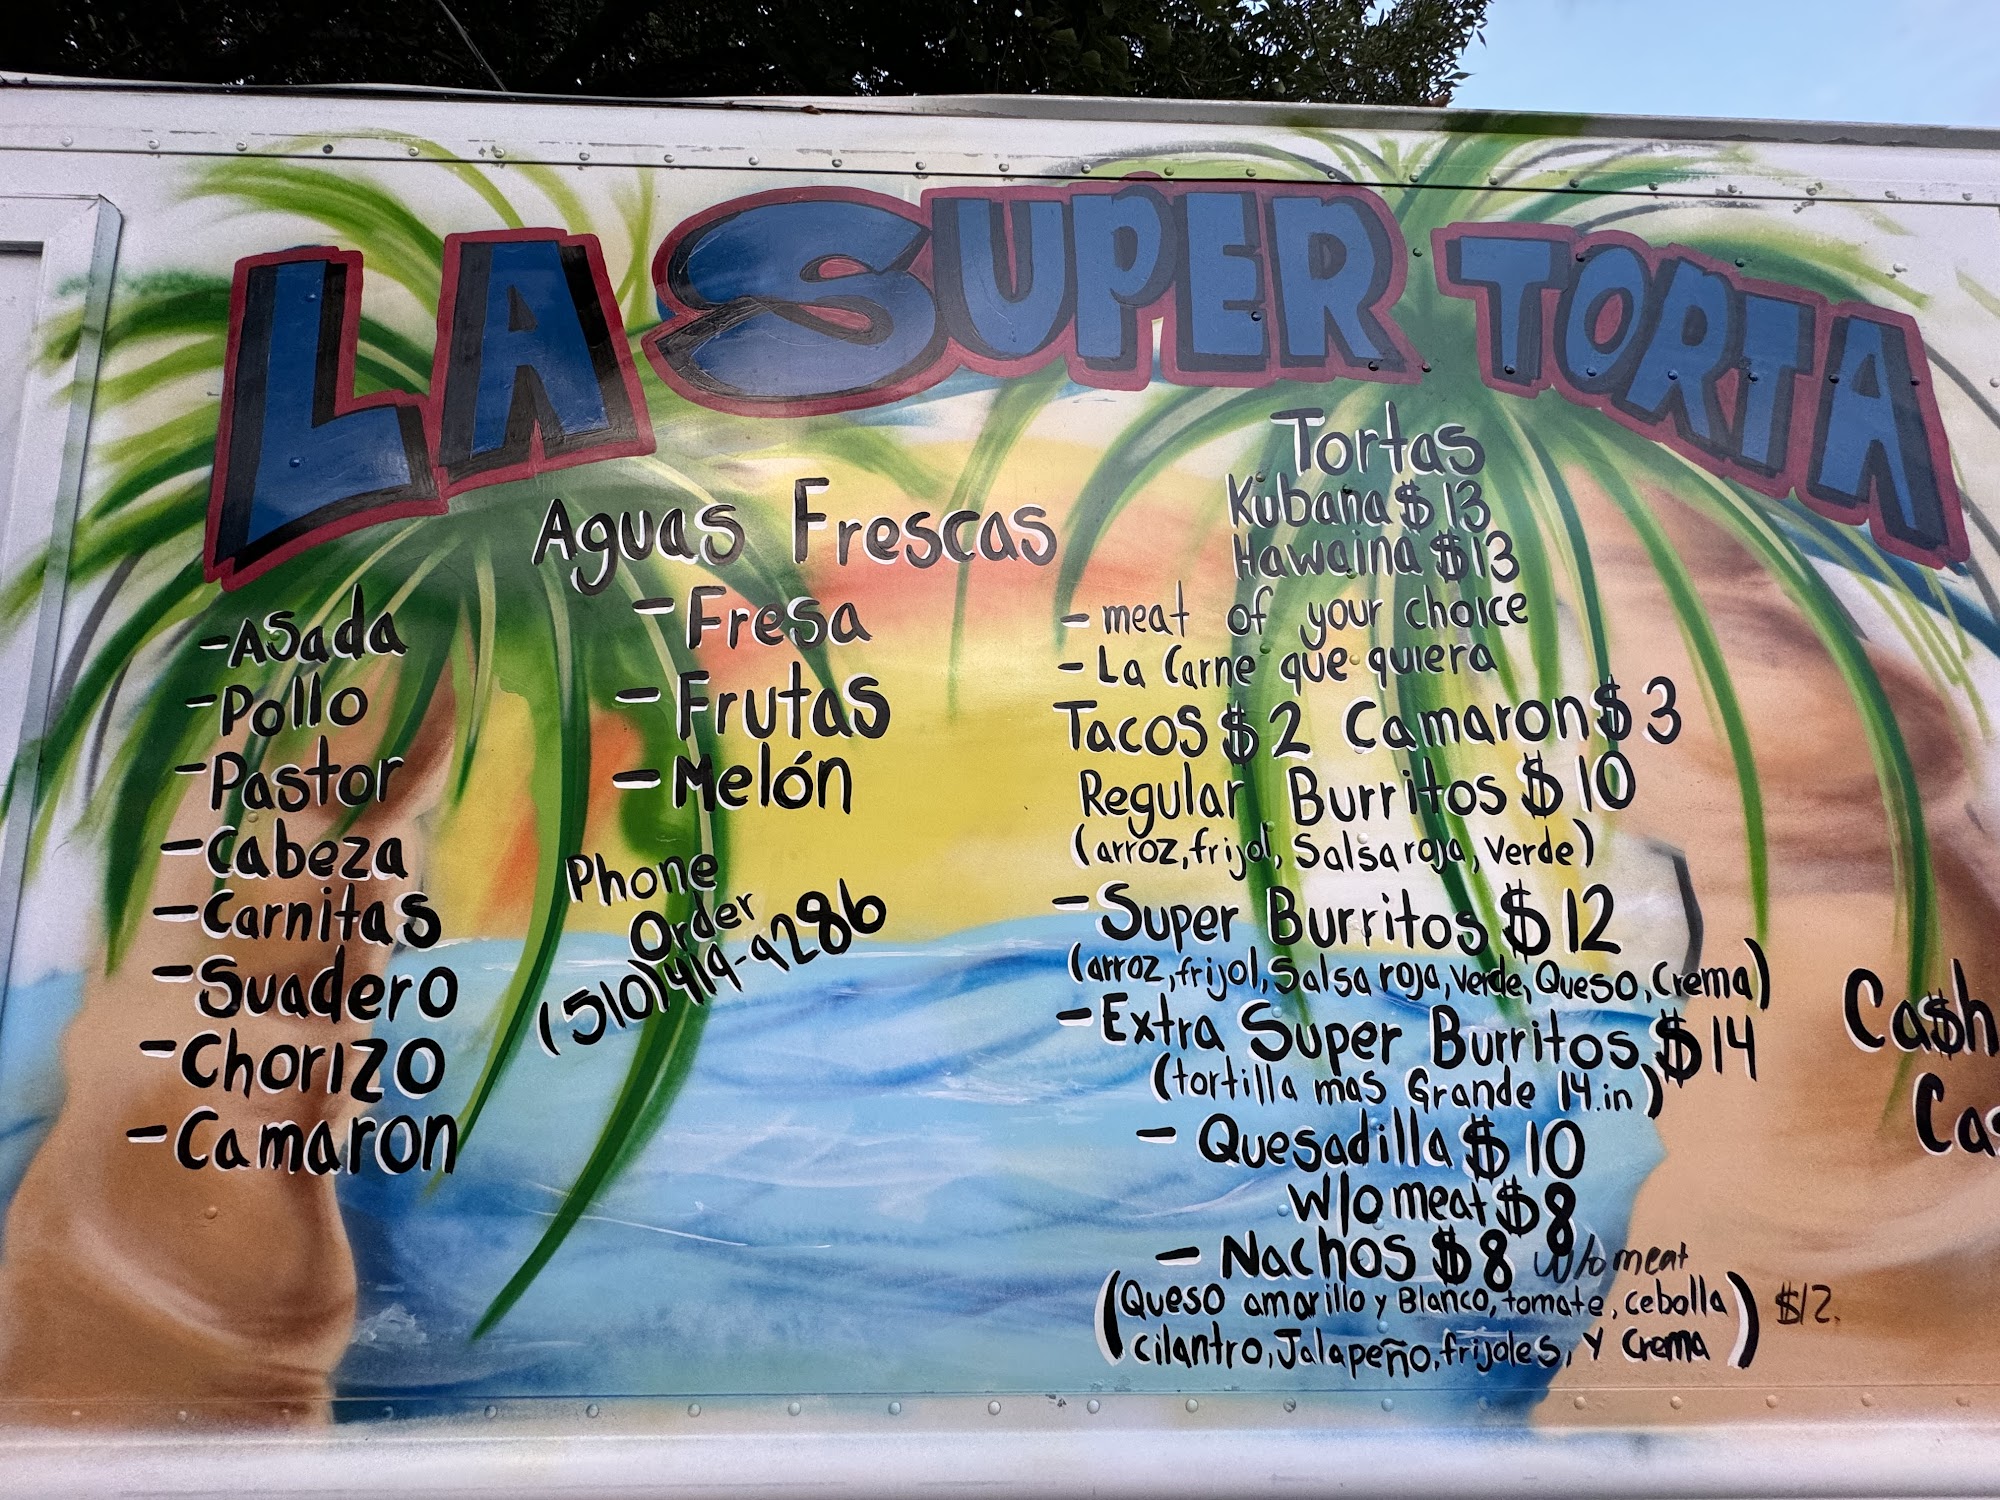 LA SUPER TORTA
-Asada
-Pollo
-Pastor
-Cabeza
-Carnitas
-Suadero
-Chorizo
-Camaron
Aguas Frescas
-Fresa
-Frutas
-Melón
Phone
Order
(510)419-9286
Tortas
Kubana $13
Hawaina $13
- meat of your choice
- La Carne que quiera
Tacos $2 Camaron $3
Regular Burritos $10
(arroz, frijol, Salsa roja, verde)
-Super Burritos $12
(arroz, frijol, Salsa roja, verde, Queso, Crema)
-Extra Super Burritos $14
(tortilla mas Grande 14.in)
- Quesadilla $10
w/o meat $8
- Nachos $8 w/o meat
(Queso amarillo y Blanco, tomate, cebolla
cilantro, Jalapeño, frijoles, y Crema) $12.
Cash